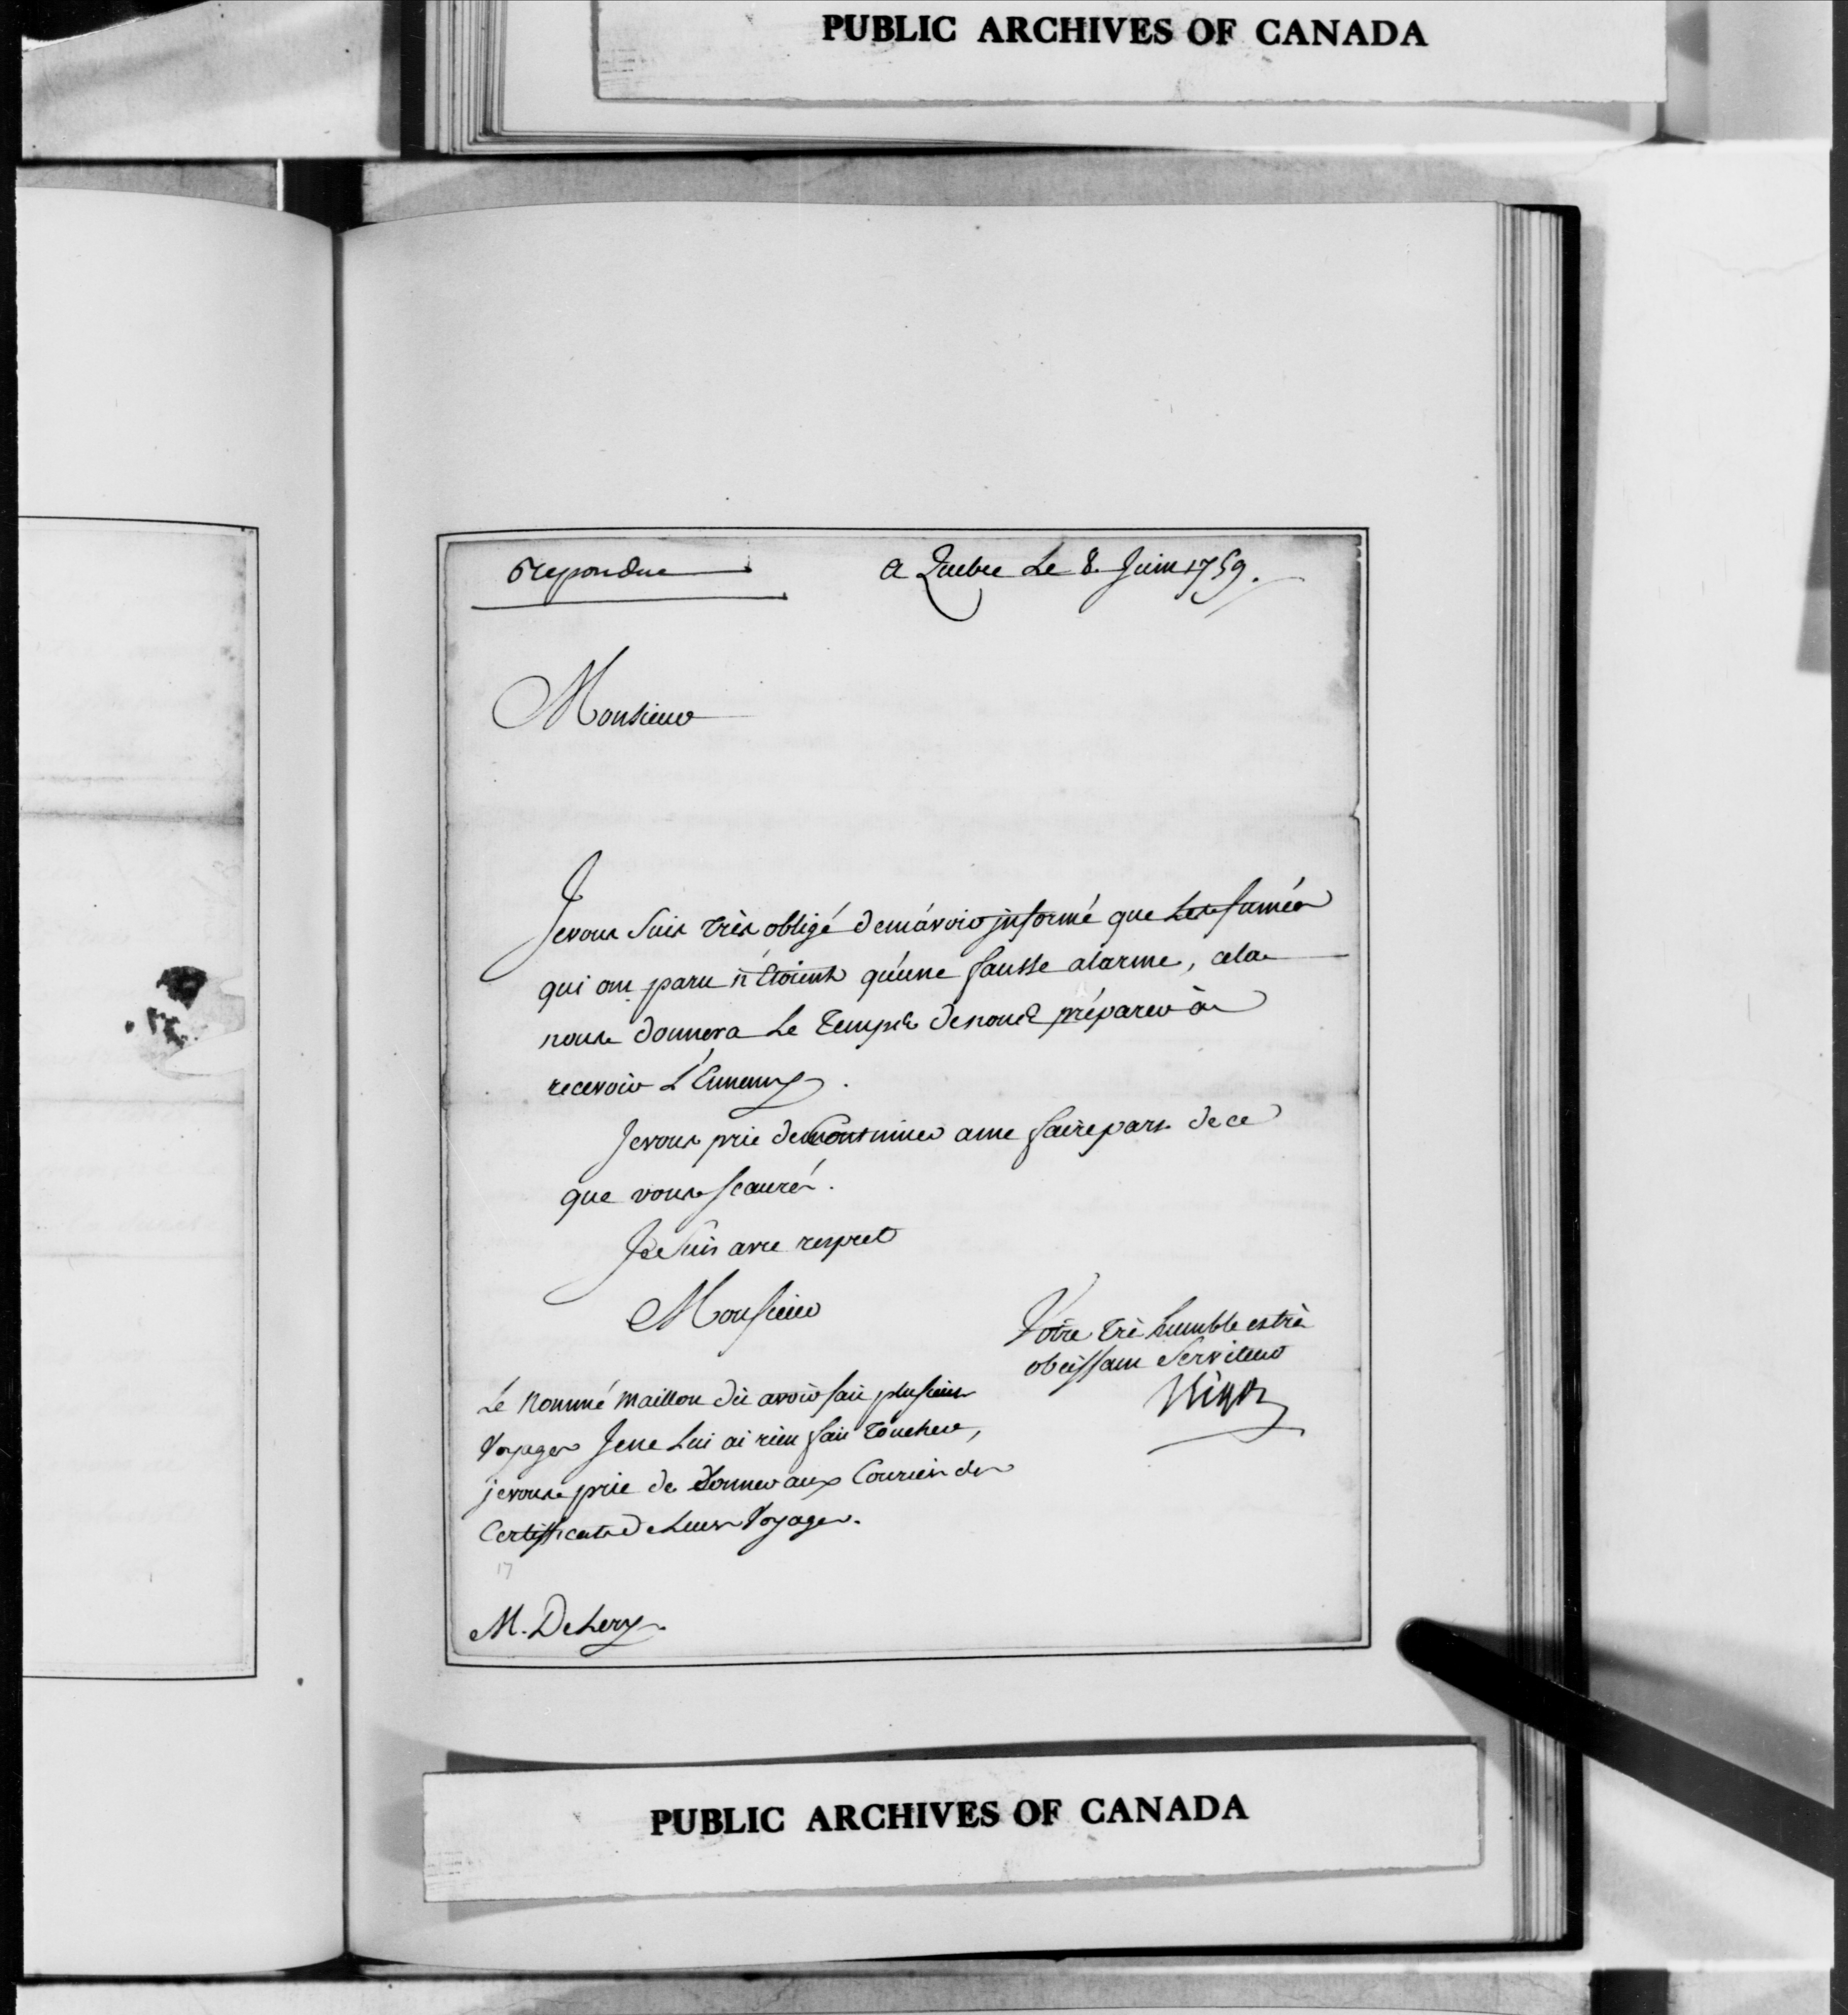 PUBLIC ARCHIVES OF CANADA
Repondue
A Quebec Le 8. Juin 1759.
Monsieur
Jevous suis très obligé demávoir jnformé que Les fumées
qui ont paru n'Etoient qu'une fausse alarme, cela
nous donnera Le Temps de nous préparer à
recevoir L'Ennemy.
Jevous prie de Continuer a me faire part de ce
que vous scaurés.
Je Suis avec respect
Monsieur
Votre très humble et très
obeissant Serviteur
Bigot
Le Nommé Maillou dit avoir fait plusieurs
Voyages Je ne Lui ai rien fait Toucher,
jevous prie de donner aux Couriers des
Certifficats de Leurs Voyages.
17
M. DeLery
PUBLIC ARCHIVES OF CANADA